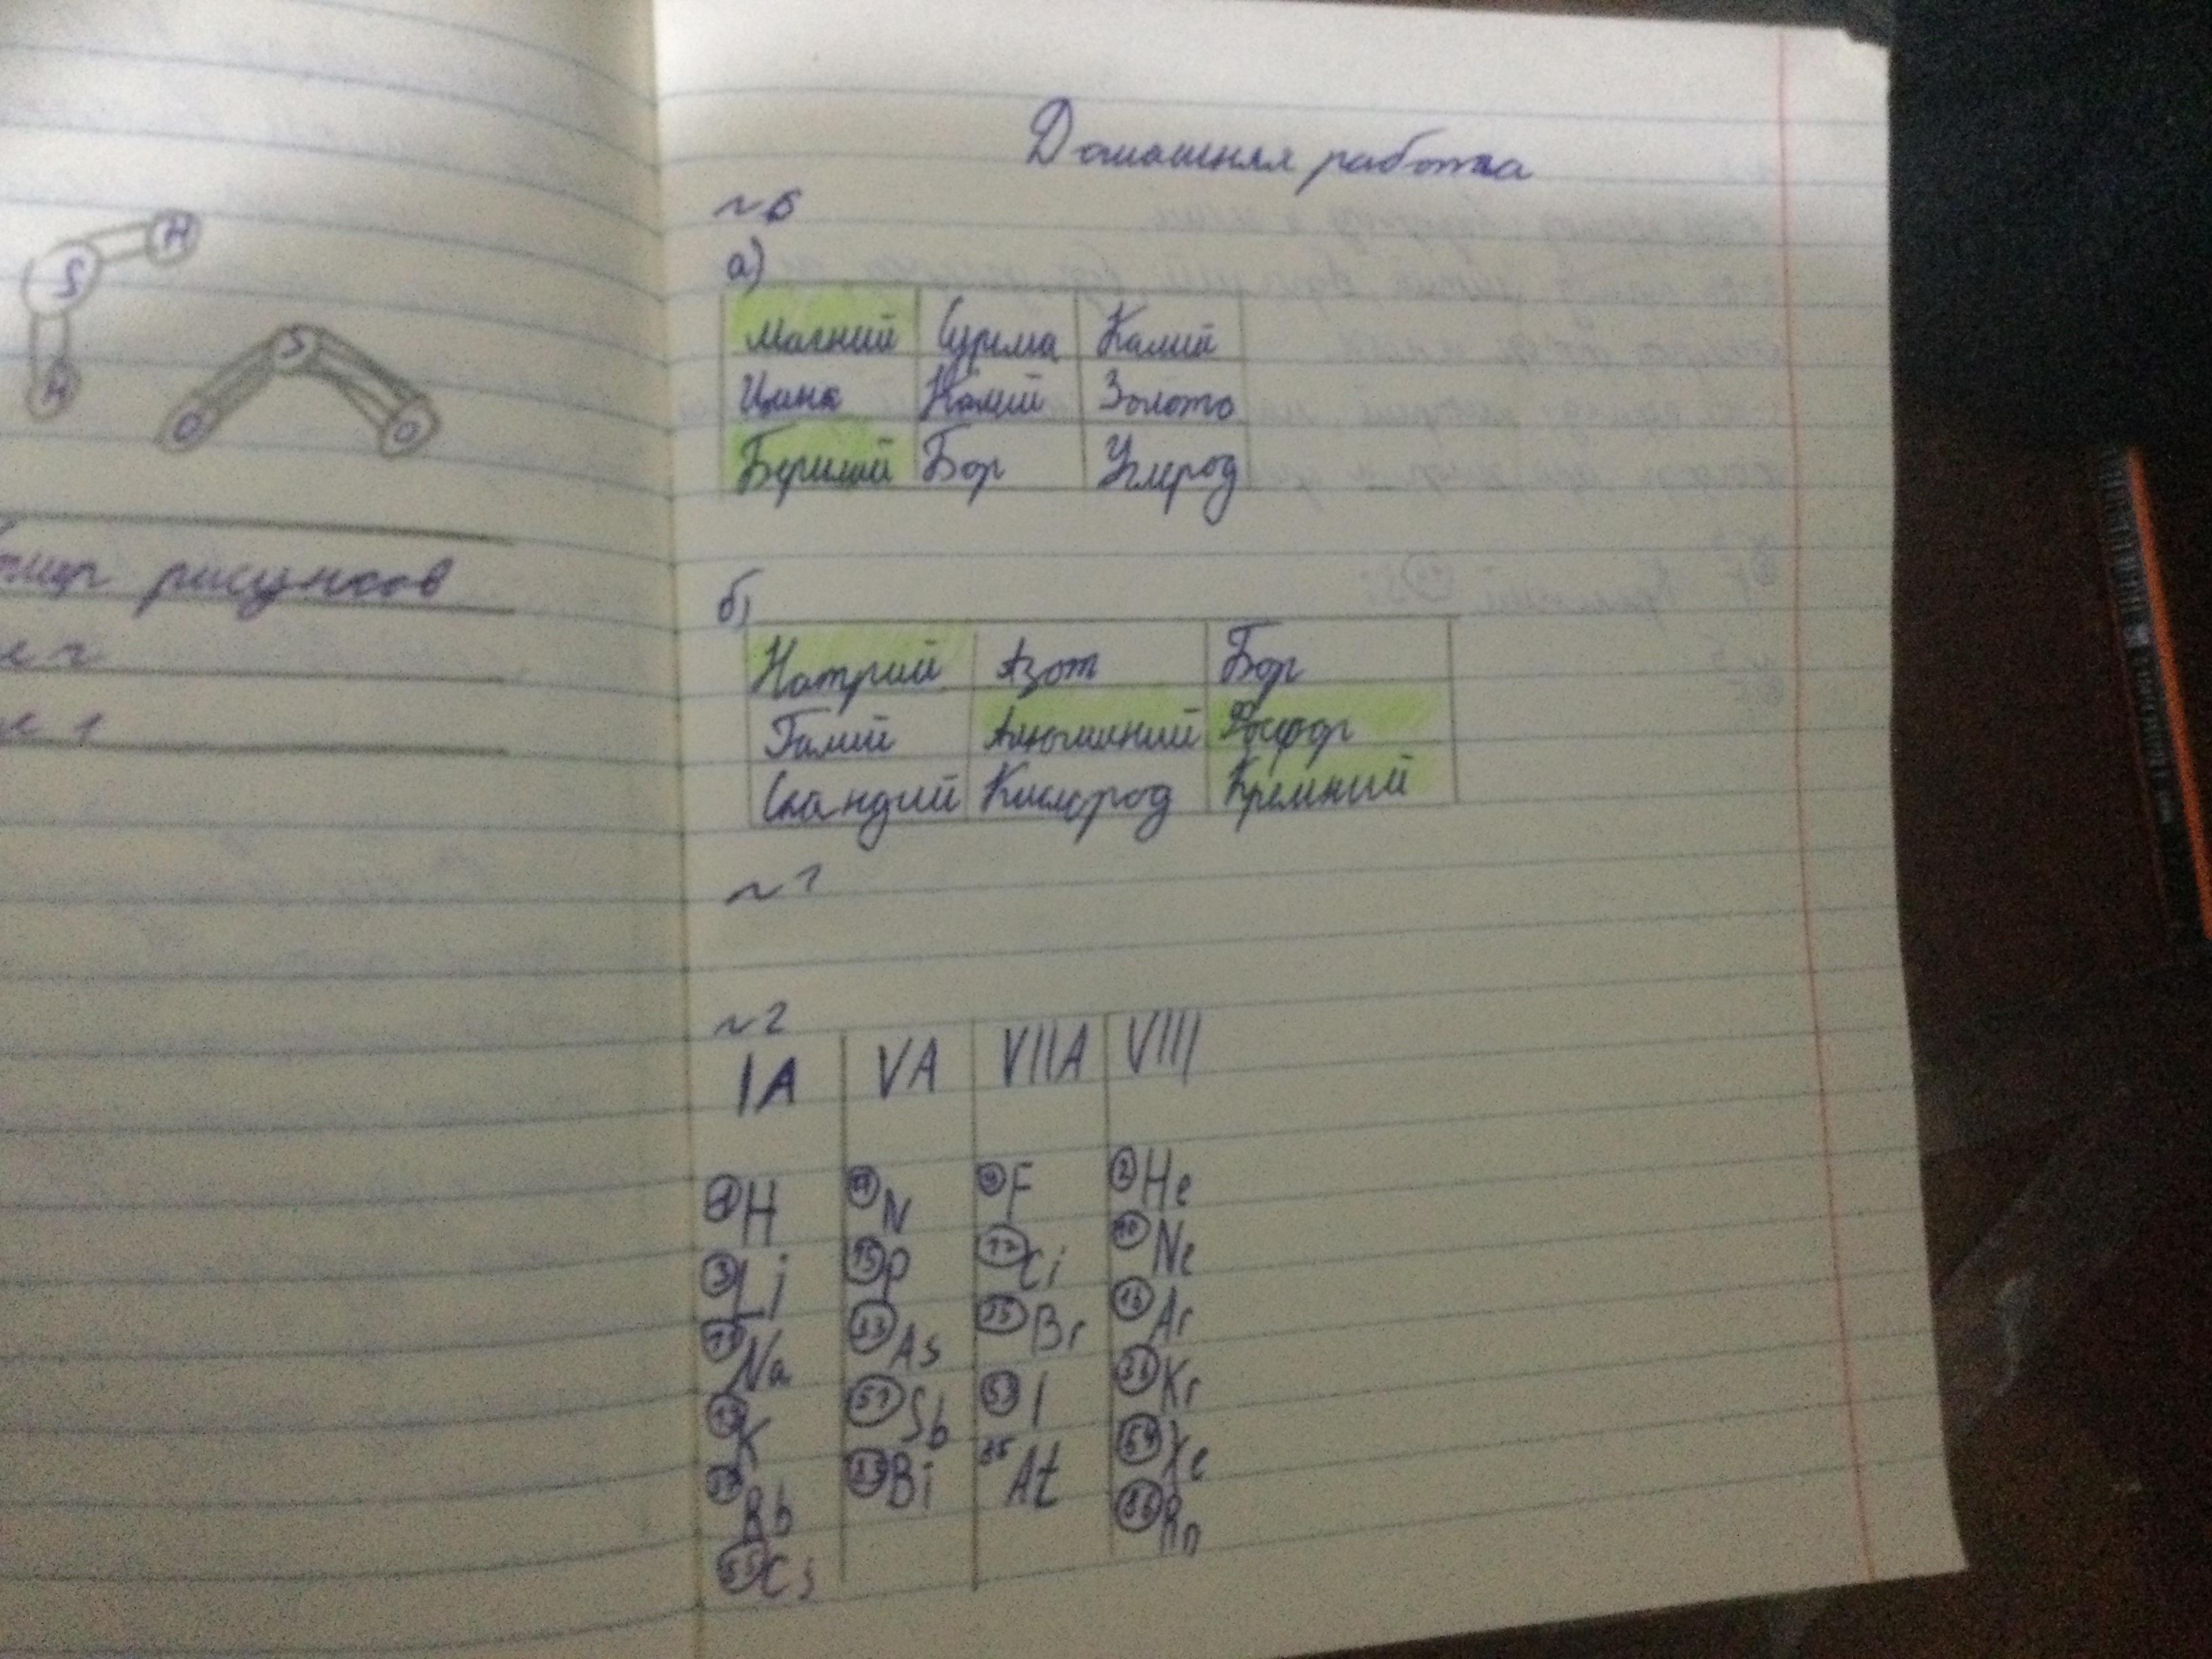 S H
H
S
O O
рисунков
Домашняя работа
№6
а)
Магний Сурьма Калий
Цинк Калий Золото
Берилий Бор Углерод
б)
Натрий Азот Бор
Галий Алюминий Фосфор
Скандий Кислород Кремний
№1
№2
IA VA VIIA VIII
1 H 7 N 9 F 2 He
3 Li 15 P 17 Cl 10 Ne
11 Na 33 As 35 Br 18 Ar
19 K 51 Sb 53 I 36 Kr
37 Rb 83 Bi 85 At 54 Xe
55 Cs 86 Rn